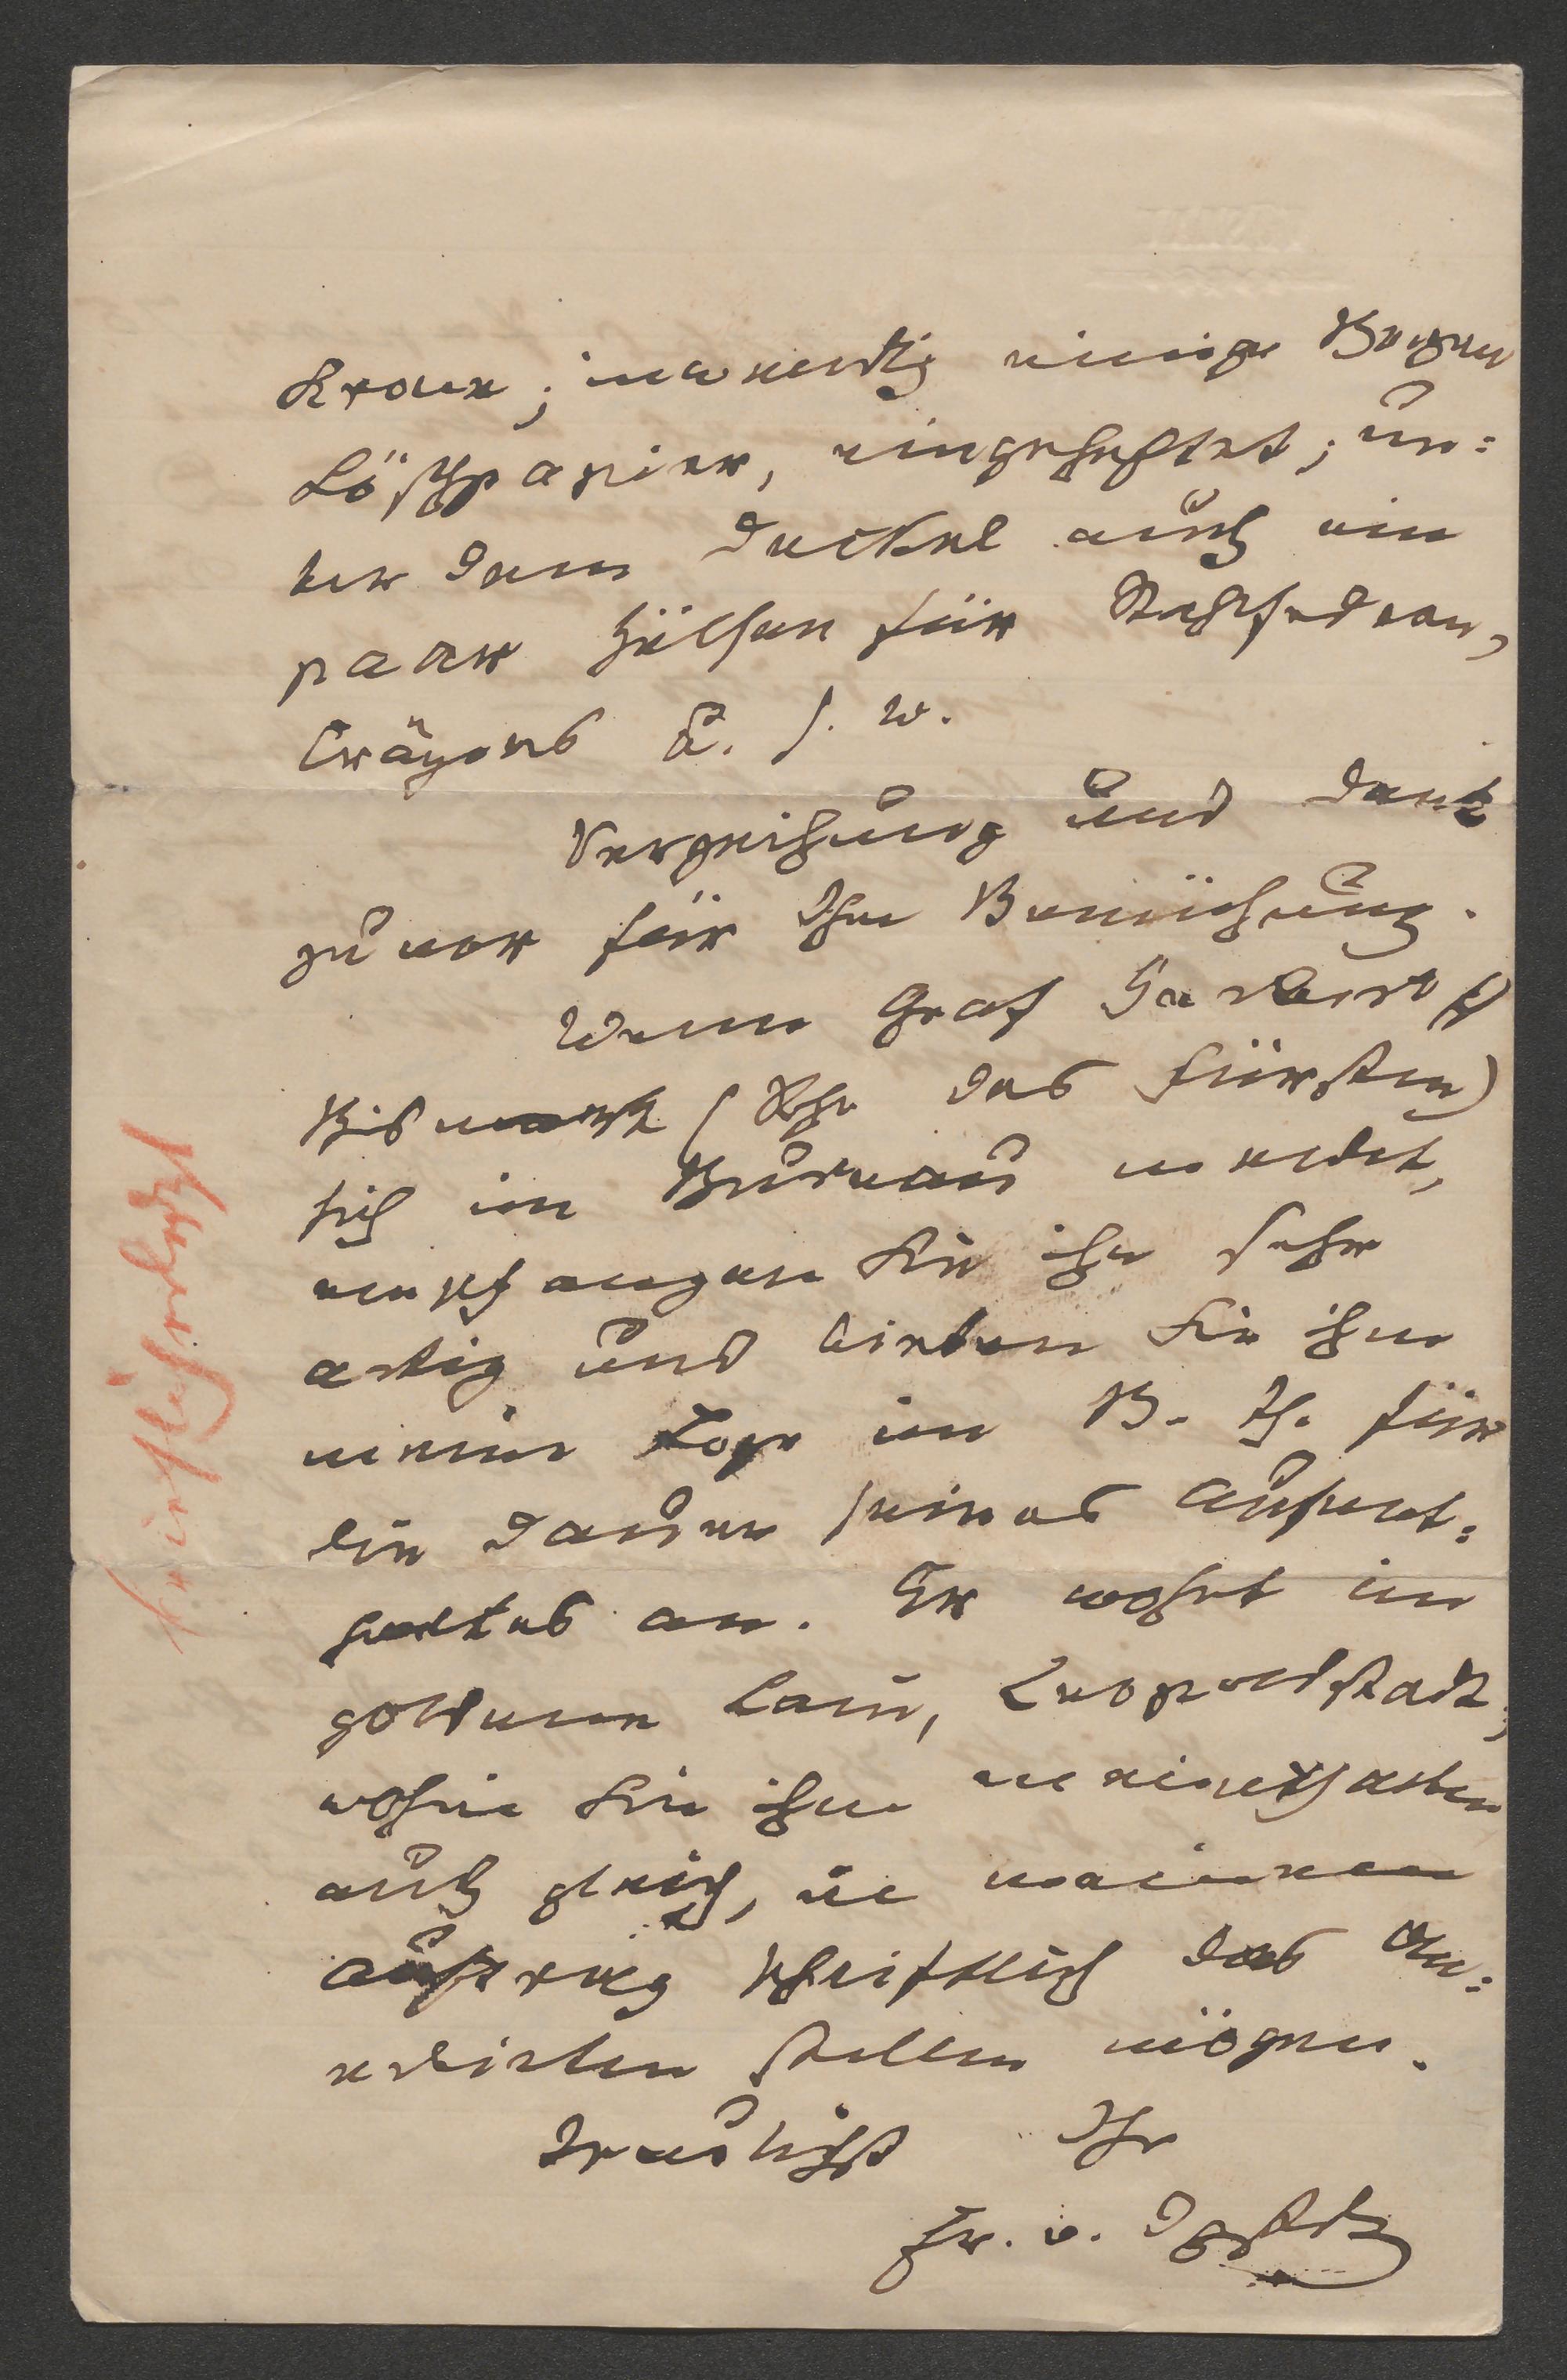 Krone; inwendig einige Bogen
Löschpapier, eingeheftet; un=
ter dem Deckel auch ein
paar Hülsen für Stahlfedern,
Crayons u. s. w.
Verzeihung und Dank
zuvor für Ihre Bemühung.
Wenn Graf Herbert
Bismarck (Sohn des Fürsten)
sich im Bureau meldet,
empfangen Sie ihn sehr
artig und bieten Sie ihm
meine Loge im B. Th. für
die Dauer seines Aufent=
haltes an. Er wohnt im
goldenen Lamm, Leopoldstadt,
wohin Sie ihm meinethalben
auch gleich, in meinem
Auftrag schriftlich das An=
erbieten stellen mögen.
Treulichst Ihr
Fr. v. Dgstdt